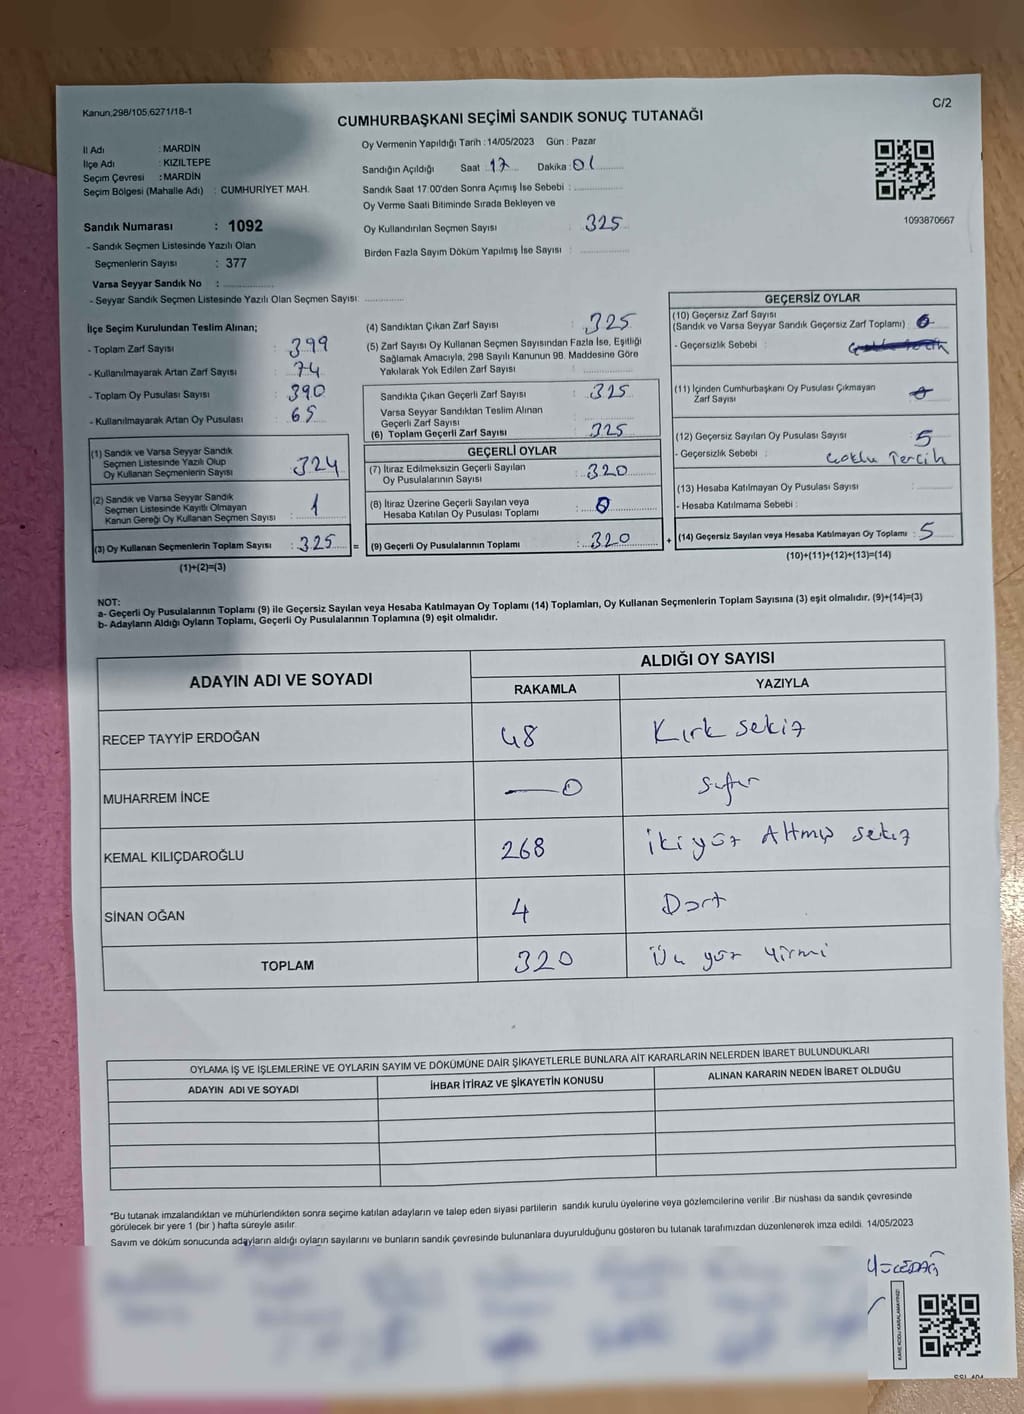 Kanun,298/105,6271/18-1
C/2
CUMHURBAŞKANI SEÇİMİ SANDIK SONUÇ TUTANAĞI
İl Adı : MARDİN
İlçe Adı : KIZILTEPE
Seçim Çevresi : MARDİN
Seçim Bölgesi (Mahalle Adı) : CUMHURİYET MAH.
Sandık Numarası : 1092
- Sandık Seçmen Listesinde Yazılı Olan
Seçmenlerin Sayısı : 377
Varsa Seyyar Sandık No :
- Seyyar Sandık Seçmen Listesinde Yazılı Olan Seçmen Sayısı:
Oy Vermenin Yapıldığı Tarih : 14/05/2023 Gün : Pazar
Sandığın Açıldığı Saat 17 Dakika : 01
Sandık Saat 17:00'den Sonra Açımış İse Sebebi :
Oy Verme Saati Bitiminde Sırada Bekleyen ve
Oy Kullandırılan Seçmen Sayısı : 325
Birden Fazla Sayım Döküm Yapılmış İse Sayısı :
1093870667
İlçe Seçim Kurulundan Teslim Alınan;
- Toplam Zarf Sayısı : 399
- Kullanılmayarak Artan Zarf Sayısı : 74
- Toplam Oy Pusulası Sayısı : 390
- Kullanılmayarak Artan Oy Pusulası : 65
(1) Sandık ve Varsa Seyyar Sandık
Seçmen Listesinde Yazılı Olup
Oy Kullanan Seçmenlerin Sayısı : 324
(2) Sandık ve Varsa Seyyar Sandık
Seçmen Listesinde Kayıtlı Olmayan
Kanun Gereği Oy Kullanan Seçmen Sayısı : 1
(3) Oy Kullanan Seçmenlerin Toplam Sayısı : 325 =
(1)+(2)=(3)
(4) Sandıktan Çıkan Zarf Sayısı : 325
(5) Zarf Sayısı Oy Kullanan Seçmen Sayısından Fazla İse, Eşitliği
Sağlamak Amacıyla, 298 Sayılı Kanunun 98. Maddesine Göre
Yakılarak Yok Edilen Zarf Sayısı :
Sandıkta Çıkan Geçerli Zarf Sayısı : 325
Varsa Seyyar Sandıktan Teslim Alınan
Geçerli Zarf Sayısı :
(6) Toplam Geçerli Zarf Sayısı : 325
GEÇERLİ OYLAR
(7) İtiraz Edilmeksizin Geçerli Sayılan
Oy Pusulalarının Sayısı : 320
(8) İtiraz Üzerine Geçerli Sayılan veya
Hesaba Katılan Oy Pusulası Toplamı : 0
(9) Geçerli Oy Pusulalarının Toplamı : 320 +
GEÇERSİZ OYLAR
(10) Geçersiz Zarf Sayısı
(Sandık ve Varsa Seyyar Sandık Geçersiz Zarf Toplamı) : 0
- Geçersizlik Sebebi :
(11) İçinden Cumhurbaşkanı Oy Pusulası Çıkmayan
Zarf Sayısı : 0
(12) Geçersiz Sayılan Oy Pusulası Sayısı : 5
- Geçersizlik Sebebi : Çoklu Tercih
(13) Hesaba Katılmayan Oy Pusulası Sayısı :
- Hesaba Katılmama Sebebi :
(14) Geçersiz Sayılan veya Hesaba Katılmayan Oy Toplamı : 5
(10)+(11)+(12)+(13)=(14)
NOT:
a- Geçerli Oy Pusulalarının Toplamı (9) ile Geçersiz Sayılan veya Hesaba Katılmayan Oy Toplamı (14) Toplamları, Oy Kullanan Seçmenlerin Toplam Sayısına (3) eşit olmalıdır. (9)+(14)=(3)
b- Adayların Aldığı Oyların Toplamı, Geçerli Oy Pusulalarının Toplamına (9) eşit olmalıdır.
ADAYIN ADI VE SOYADI
ALDIĞI OY SAYISI
RAKAMLA YAZIYLA
RECEP TAYYİP ERDOĞAN 48 Kırk sekiz
MUHARREM İNCE 0 Sıfır
KEMAL KILIÇDAROĞLU 268 İkiyüz Altmış sekiz
SİNAN OĞAN 4 Dört
TOPLAM 320 Üç yüz yirmi
OYLAMA İŞ VE İŞLEMLERİNE VE OYLARIN SAYIM VE DÖKÜMÜNE DAİR ŞİKAYETLERLE BUNLARA AİT KARARLARIN NELERDEN İBARET BULUNDUKLARI
ADAYIN ADI VE SOYADI İHBAR İTİRAZ VE ŞİKAYETİN KONUSU ALINAN KARARIN NEDEN İBARET OLDUĞU
*Bu tutanak imzalandıktan ve mühürlendikten sonra seçime katılan adayların ve talep eden siyasi partilerin sandık kurulu üyelerine veya gözlemcilerine verilir .Bir nüshası da sandık çevresinde
görülecek bir yere 1 (bir ) hafta süreyle asılır.
Sayım ve döküm sonucunda adayların aldığı oyların sayılarını ve bunların sandık çevresinde bulunanlara duyurulduğunu gösteren bu tutanak tarafımızdan düzenlenerek imza edildi. 14/05/2023
YÜCEDAĞ
KARE KODU KARALAMAYINIZ!